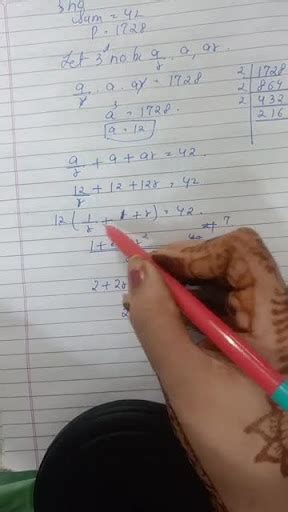 3 no
Sum = 42
P = 1728
Let 3 no be a/r, a, ar.
a/r . a . ar = 1728
a³ = 1728
a = 12
2 | 1728
2 | 864
2 | 432
216
a/r + a + ar = 42
12/r + 12 + 12r = 42
12 (1/r + 1 + r) = 42
7
1 +
2 + 2r